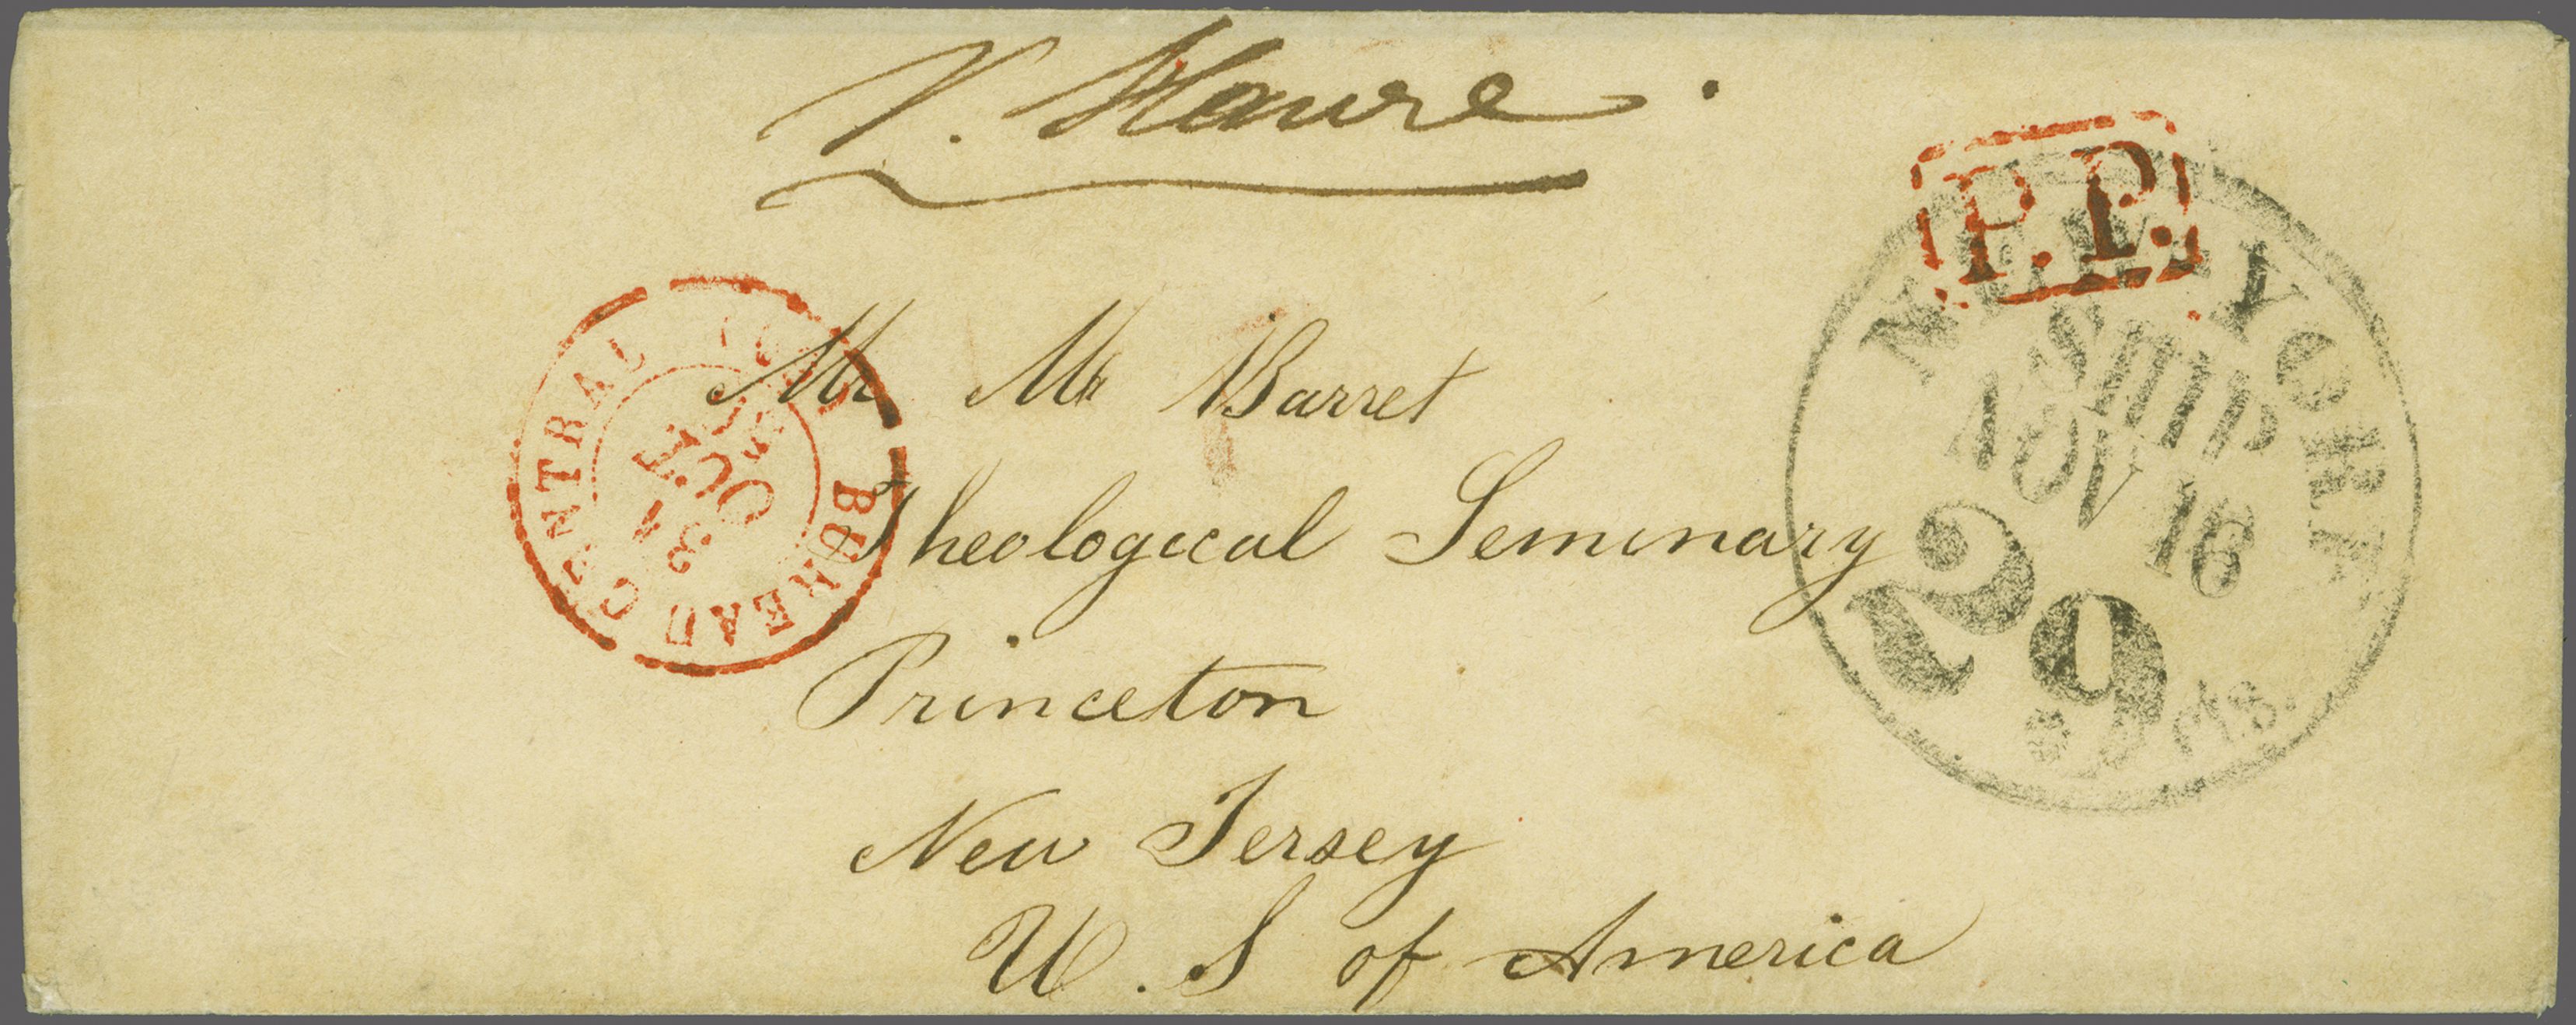 V. Havre.
P.P.
NEW YORK
SHIP
NOV 16
20
cts.
BUREAU CENTRAL
OCT
31
Mr Mr Barret
Theological Seminary
Princeton
New Jersey
U. S of America